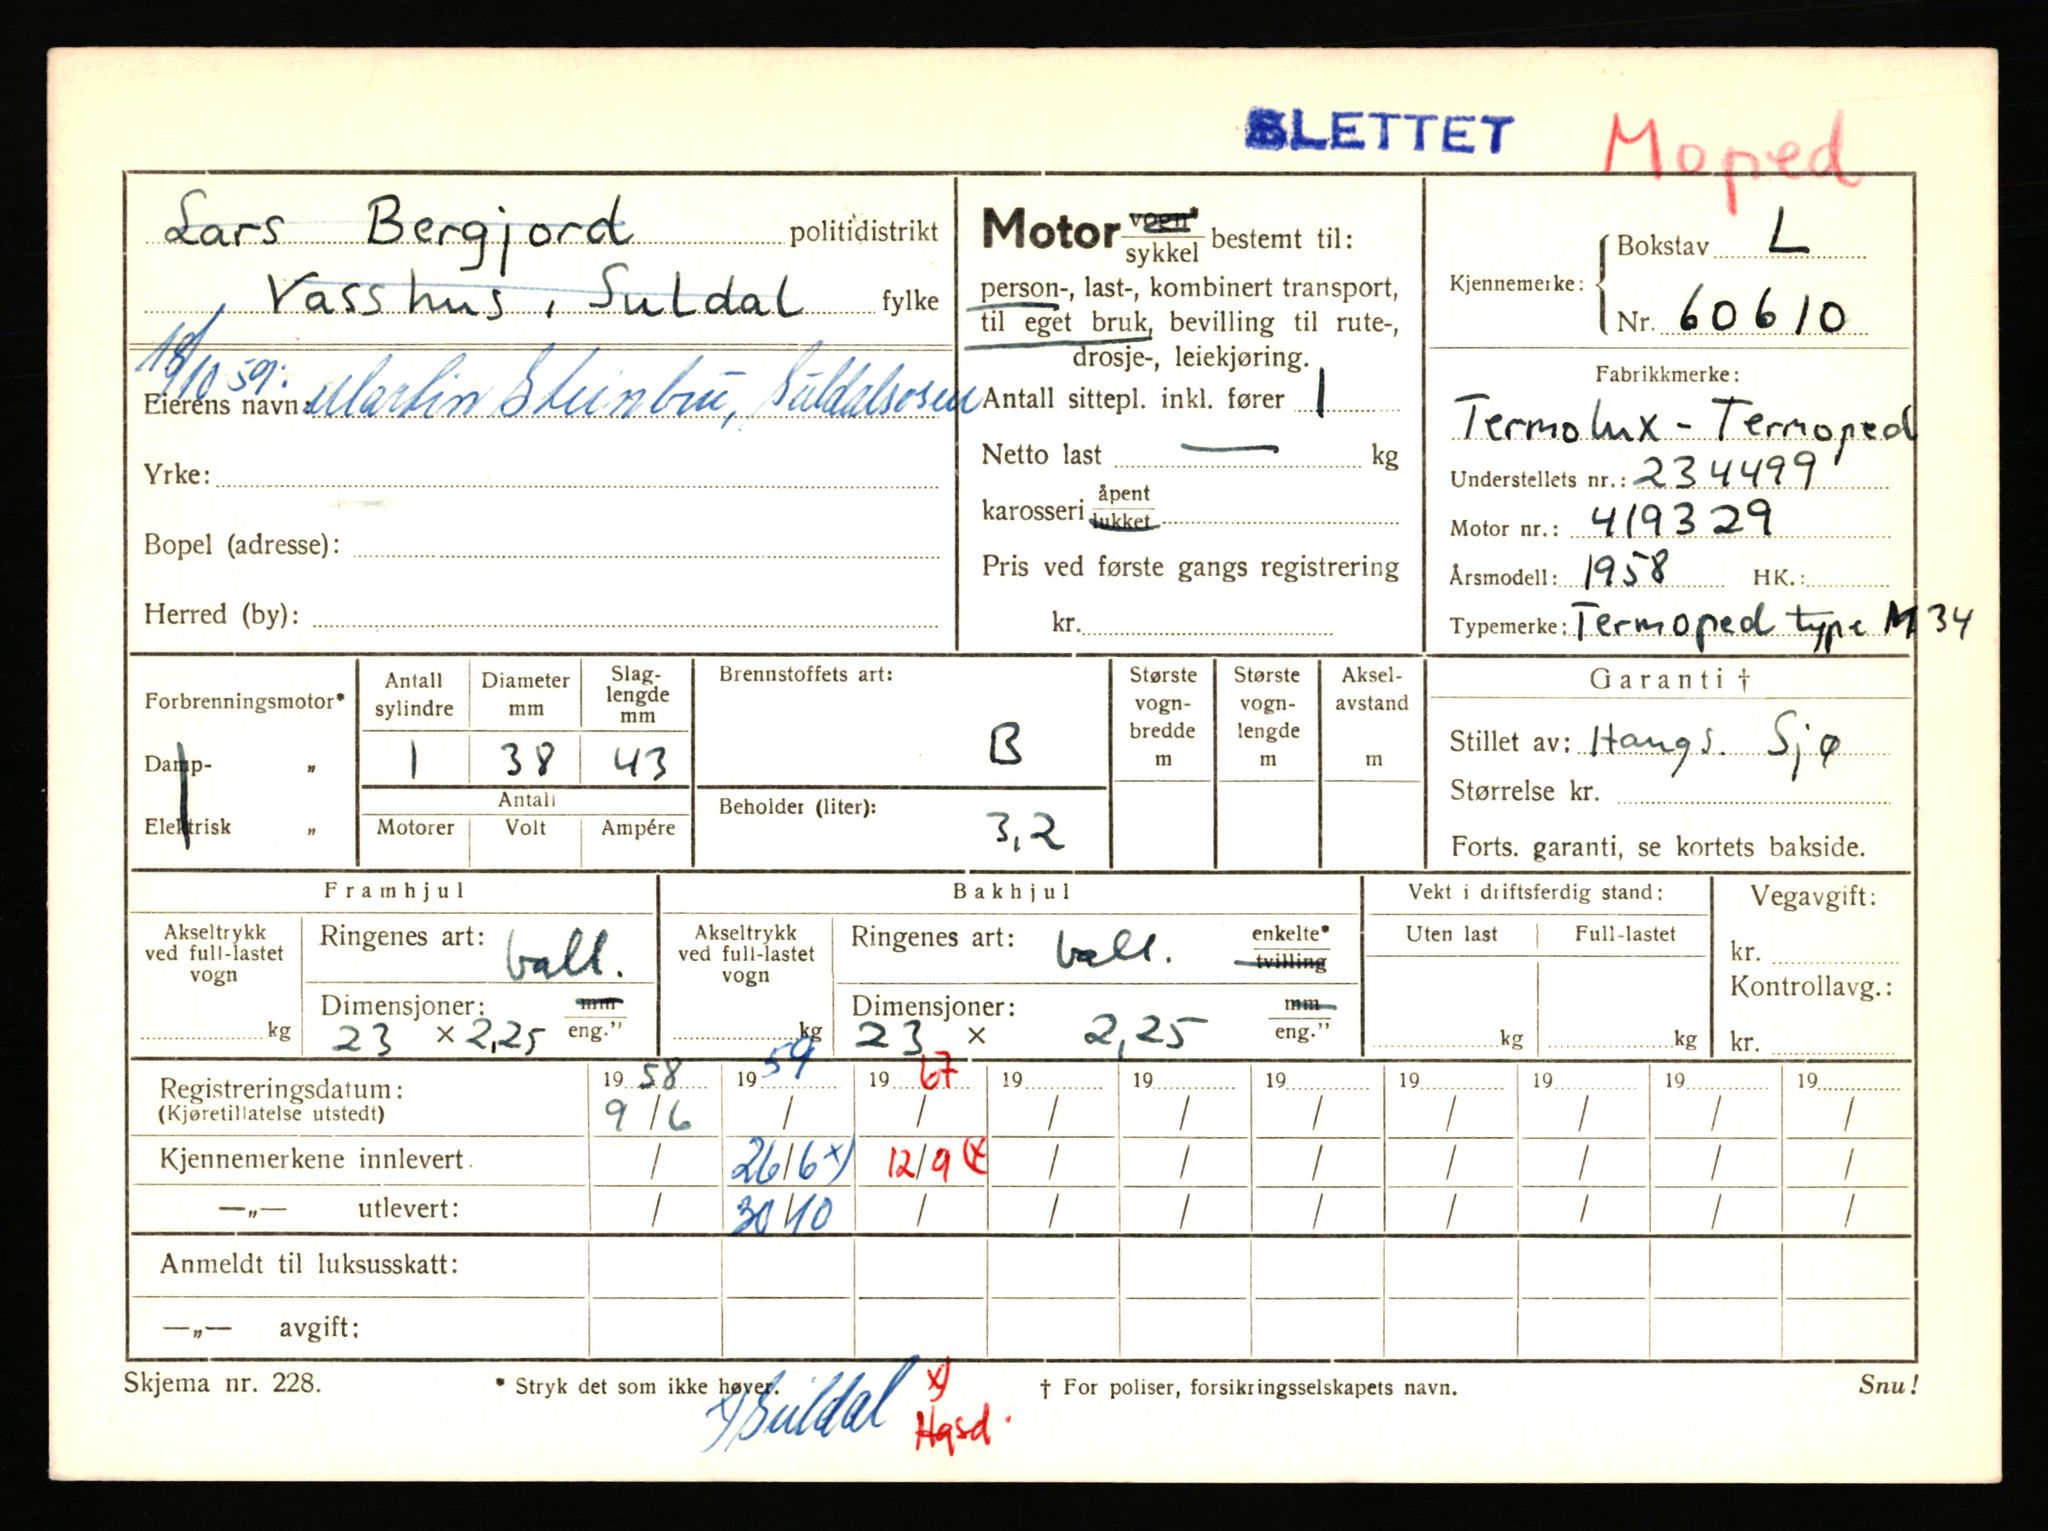 SLETTET Moped
Lars Bergjord politidistrikt
Vasshus, Suldal fylke
18/10 59:
Eierens navn: Martin Steinbru, Suldalsosen
Yrke:
Bopel (adresse):
Herred (by):
Motor vogn* / sykkel bestemt til:
person-, last-, kombinert transport,
til eget bruk, bevilling til rute-,
drosje-, leiekjøring.
Antall sittepl. inkl. fører 1
Netto last — kg
karosseri åpent / lukket
Pris ved første gangs registrering
kr.
Kjennemerke: Bokstav L
Nr. 60610
Fabrikkmerke:
Termolux - Termoped
Understellets nr.: 234499
Motor nr.: 419329
Årsmodell: 1958 HK.:
Typemerke: Termoped type M 34
Forbrenningsmotor*
Damp- „
Elektrisk „
Antall sylindre Diameter mm Slag-lengde mm
1 38 43
Antall
Motorer Volt Ampére
Brennstoffets art:
B
Beholder (liter):
3,2
Største vogn-bredde m
Største vogn-lengde m
Aksel-avstand m
Garanti †
Stillet av: Haugs. Sjø
Størrelse kr.
Forts. garanti, se kortets bakside.
Framhjul
Akseltrykk ved full-lastet vogn
kg
Ringenes art: ball.
Dimensjoner: mm
23 x 2,25 eng."
Bakhjul
Akseltrykk ved full-lastet vogn
kg
Ringenes art: ball. enkelte* / tvilling
Dimensjoner: mm
23 x 2,25 eng."
Vekt i driftsferdig stand:
Uten last Full-lastet
kg kg
Vegavgift:
kr.
Kontrollavg.:
kr.
Registreringsdatum: 19 58 19 59 19 67 19 19 19 19 19 19 19
(Kjøretillatelse utstedt) 9/6 / / / / / / / / /
Kjennemerkene innlevert. / 26/6 x) 12/9 (x / / / / / / /
—„— utlevert: / 30/10 / / / / / / / /
Anmeldt til luksusskatt:
—„— avgift:
Skjema nr. 228. * Stryk det som ikke høver. † For poliser, forsikringsselskapets navn. Snu!
x) Suldal x) Hgsd.